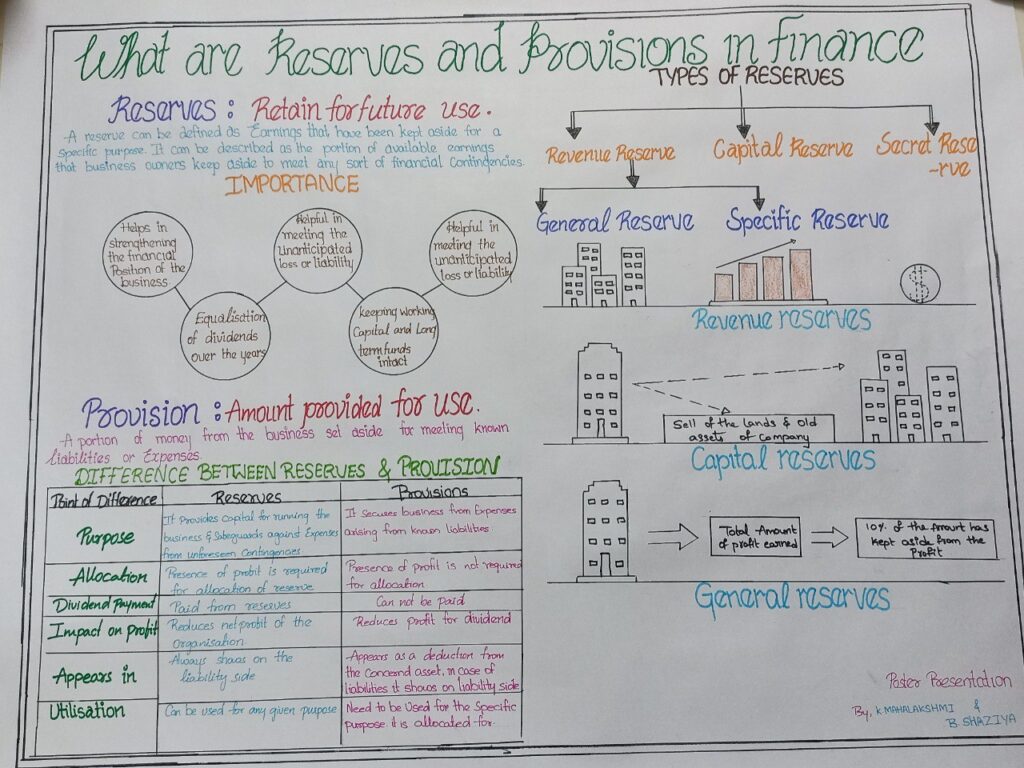 What are Reserves and Provisions in finance
Reserves : Retain for future use.
-A reserve can be defined as Earnings that have been kept aside for a
specific purpose. It can be described as the portion of available earnings
that business owners keep aside to meet any sort of financial Contingencies.
IMPORTANCE
Helps in
strengthening
the financial
Position of the
business
Equalisation
of dividends
over the years
Helpful in
meeting the
Unanticipated
loss or liability
Keeping working
Capital and Long
term funds
intact
Helpful in
meeting the
unanticipated
loss or liability
Provision : Amount provided for use.
-A portion of money from the business set aside for meeting known
liabilities or Expenses.
DIFFERENCE BETWEEN RESERVES & PROVISION
Point of Difference Reserves Provisions
Purpose
It Provides Capital for running the
business & Safeguards against Expenses
from unforeseen Contingencies
It Secures business from Expenses
arising from known liabilities
Allocation
Presence of profit is required
for allocation of reserve
Presence of profit is not required
for allocation
Dividend Payment
Paid from reserves
Can not be paid
Impact on profit
Reduces net profit of the
Organisation
Reduces profit for dividend
Appears in
Always shows on the
liability side
Appears as a deduction from
the Concernd asset, in case of
liabilities it shows on liability side
Utilisation
Can be used for any given purpose
Need to be Used for the Specific
purpose it is allocated for.
TYPES OF RESERVES
Revenue Reserve
Capital Reserve
Secret Rese
-rve
General Reserve
Specific Reserve
$
Revenue reserves
Sell of the lands & old
assets of Company
Capital reserves
Total Amount
of profit earned
10% of the Amount has
kept aside from the
Profit
General reserves
Poster Presentation
By, K.MAHALAKSHMI &
B. SHAZIYA